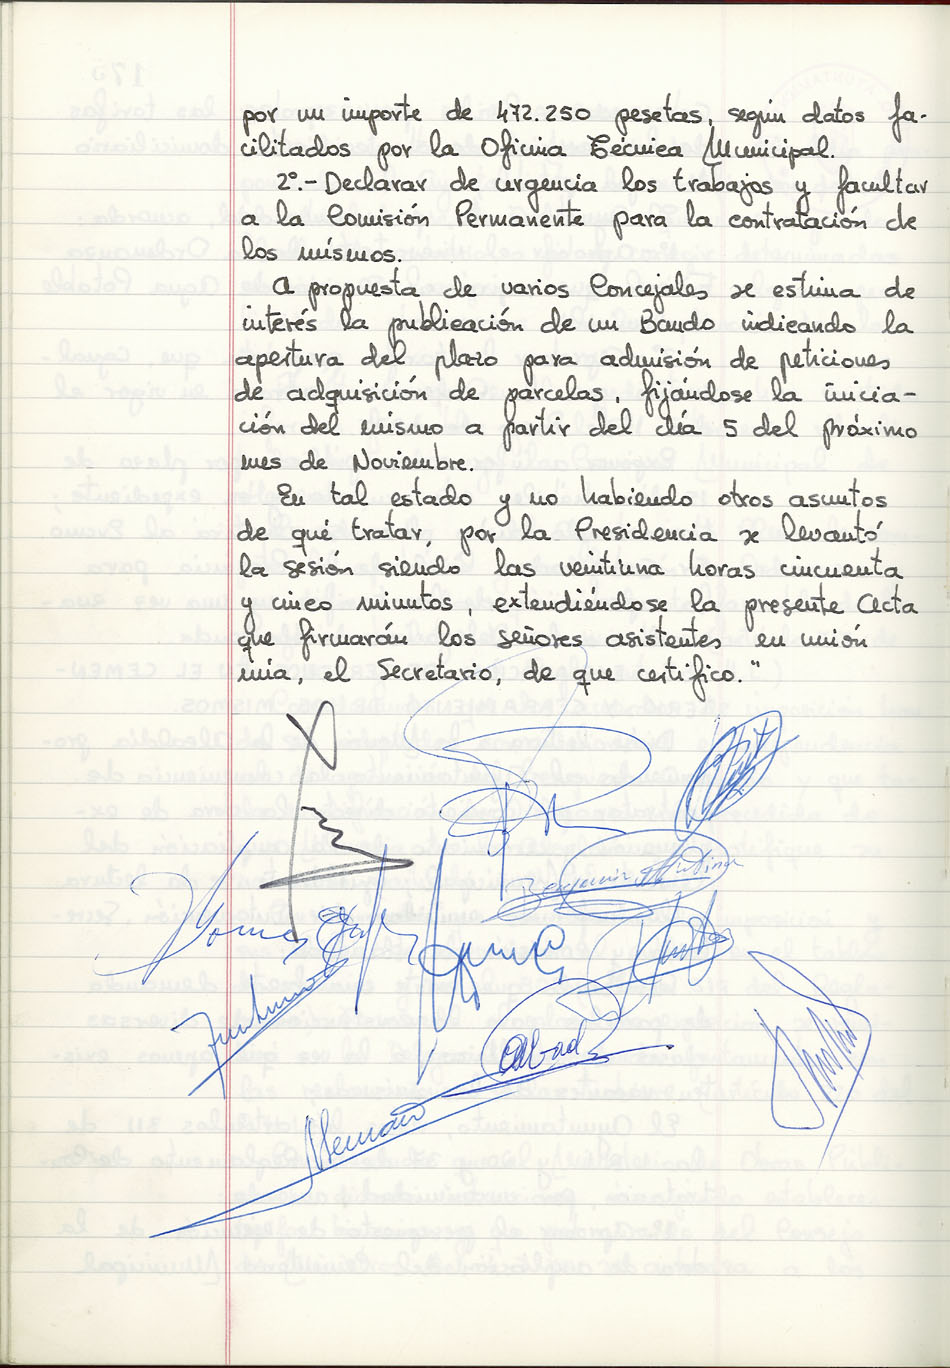 por un importe de 472.250 pesetas, según datos fa-
cilitados por la Oficina Técnica Municipal.
2º.- Declarar de urgencia los trabajos y facultar
a la Comisión Permanente para la contratación de
los mismos.
A propuesta de varios Concejales se estima de
interés la publicación de un Bando indicando la
apertura del plazo para admisión de peticiones
de adquisición de parcelas, fijándose la inicia-
ción del mismo a partir del día 5 del próximo
mes de Noviembre.
En tal estado y no habiendo otros asuntos
de qué tratar, por la Presidencia se levantó
la sesión siendo las veintiuna horas cincuenta
y cinco minutos, extendiéndose la presente Acta
que firmarán los señores asistentes en unión
mía, el Secretario, de que certifico."
Benjamin Medina
Tomas
Abad